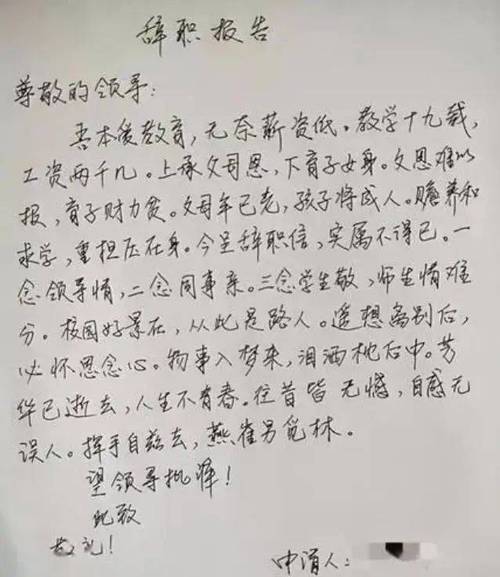 辞职报告
尊敬的领导:
吾本従教育,无奈薪资低。教学十九载,
工资两千几。上承父母恩,下育子女身。父恩难以
报,育子财力贫。父母年已老,孩子将成人。赡养和
求学,重担压在身。今呈辞职信,实属不得已。一
念领导情,二念同事亲。三念学生敬,师生情难
分。校园好景在,从此是路人。遥想离别后,
必怀恩念心。物事入梦来,泪洒枕后中。芳
华已逝去,人生不有春。往昔皆无憾,自感无
误人。挥手自兹去,燕雀另觅林。
望领导批准!
此致
敬礼!
申请人: